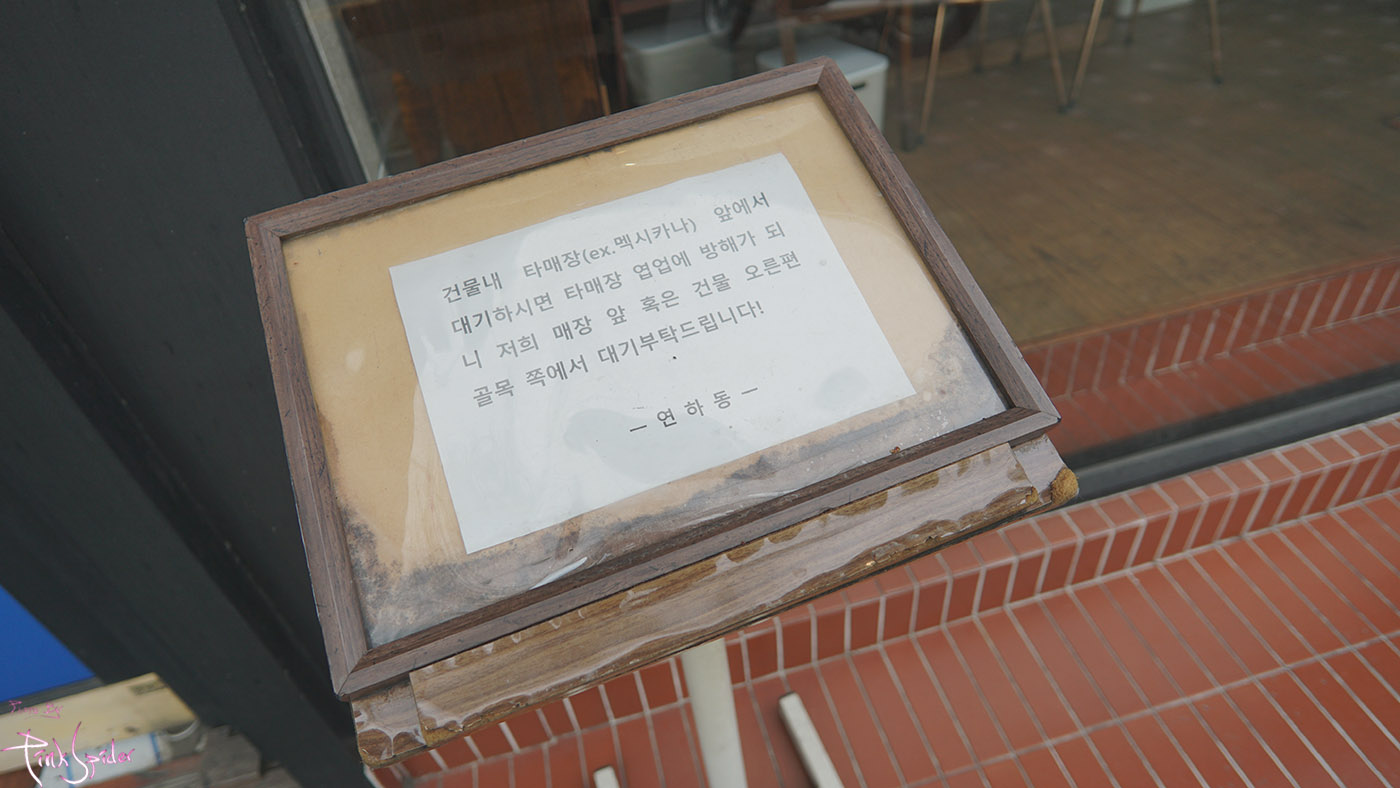 건물내 타매장(ex.멕시카나) 앞에서
대기하시면 타매장 엽업에 방해가 되
니 저희 매장 앞 혹은 건물 오른편
골목 쪽에서 대기부탁드립니다!
ㅡ 연 하 동 ㅡ
Pink Spider